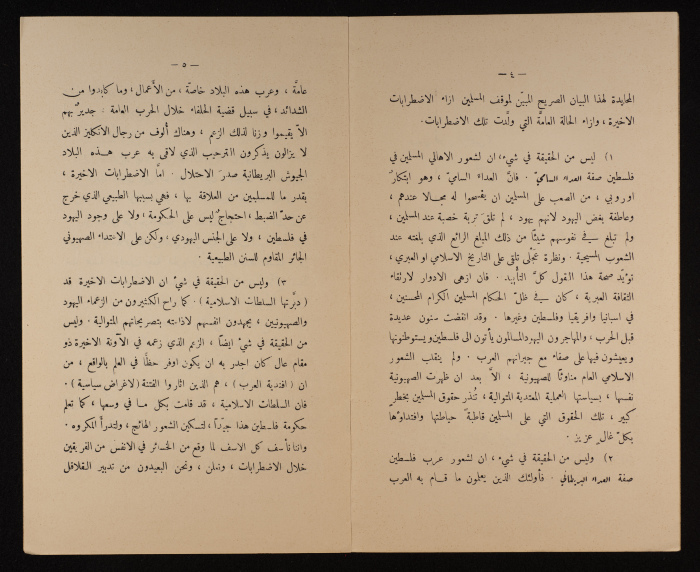 — ٤ —
المحايدة لهذا البيان الصريح المبيّن لموقف المسلمين ازاء الاضطرابات
الاخيرة ، وازاء الحالة العامة التي ولَّدت تلك الاضطرابات.
١) ليس من الحقيقة في شيء، ان لشعور الاهالي المسلمين في
فلسطين صفة العداء السامي . فانَّ العداء السامي ، وهو ابتكارٌ
اوروبي ، من الصعب على المسلمين ان يفسحوا له مجالا عندهم ،
وعاطفة بغض اليهود لانهم يهود ، لم تلق تربة خصبة عند المسلمين ،
ولم تبلغ في نفوسهم شيئًا من ذلك المبلغ الرائع الذي بلغته عند
الشعوب المسيحية . ونظرة عَجْلى تلقى على التاريخ الاسلامي او العبري ،
تؤيّد صحة هذا القول كلَّ التأييد . فان ازهى الادوار لارتقاء
الثقافة العبرية ، كان في ظلّ الحكام المسلمين الكرام المحسنين ،
في اسبانيا وافريقيا وفلسطين وغيرها . وقد انقضت سنون عديدة
قبل الحرب ، والمهاجرون اليهود المسالمون يأتون الى فلسطين ويستوطنونها
ويعيشون فيها على صفاء مع جيرانهم العرب . ولم ينقلب الشعور
الاسلامي العام مناوئًا للصهيونية ، الاَّ بعد ان ظهرت الصهيونية
نفسها ، بسياستها العملية المعتدية المتوالية ، تنذر حقوق المسلمين بخطرٍ
كبير ، تلك الحقوق التي على المسلمين قاطبةً حياطتها وافتداؤها
بكلّ غالٍ عزيز .
٢) وليس من الحقيقة في شيء ، ان لشعور عرب فلسطين
صفة العداء البريطاني . فأولئك الذين يعلمون ما قام به العرب
— ٥ —
عامَّة ، وعرب هذه البلاد خاصَّة ، من الأعمال ، وما كابدوا من
الشدائد ، في سبيل قضية الحلفاء خلال الحرب العامة : جديرٌ بهم
الاّ يقيموا وزنا لذلك الزعم ، وهناك أُلوف من رجال الانكليز الذين
لا يزالون يذكرون الترحيب الذي لاقى به عرب هذه البلاد
الجيوش البريطانية صدرَ الاحتلال . امَّا الاضطرابات الاخيرة ،
بقدر ما للمسلمين من العلاقة بها ، فهي بسببها الطبيعي الذي خرج
عن حدّ الضبط ، احتجاجٌ ليس على الحكومة ، ولا على وجود اليهود
في فلسطين ، ولا على الجنس اليهودي ، ولكن على الاعتداء الصهيوني
الجائر المقاوم للسنن الطبيعية .
٣) وليس من الحقيقة في شيء ان الاضطرابات الاخيرة قد
( دبَّرتها السلطات الاسلامية ) . كما راح الكثيرون من الزعماء اليهود
والصهيونيين ، يجهدون انفسهم لاذاعته بتصريحاتهم المتوالية . وليس
من الحقيقة في شيء ايضًا ، الزعم الذي زعمه في الآونة الاخيرة ذو
مقام عال كان اجدر به ان يكون اوفر حظًّا في العلم بالواقع ، من
ان ( افندية العرب ) ، هم الذين اثاروا الفتنة ( لاغراض سياسية ) .
فان السلطات الاسلامية ، قد قامت بكل ما في وسعها ، كما تعلم
حكومة فلسطين هذا جيّدًا ، لتسكين الشعور الهائج ، ولتدرأ المكروه .
واننا نأسف كل الاسف لما وقع من الخسائر في الانفس من الفريقين
خلال الاضطرابات ، ونعلن ، ونحن البعيدون من تدبير القلاقل